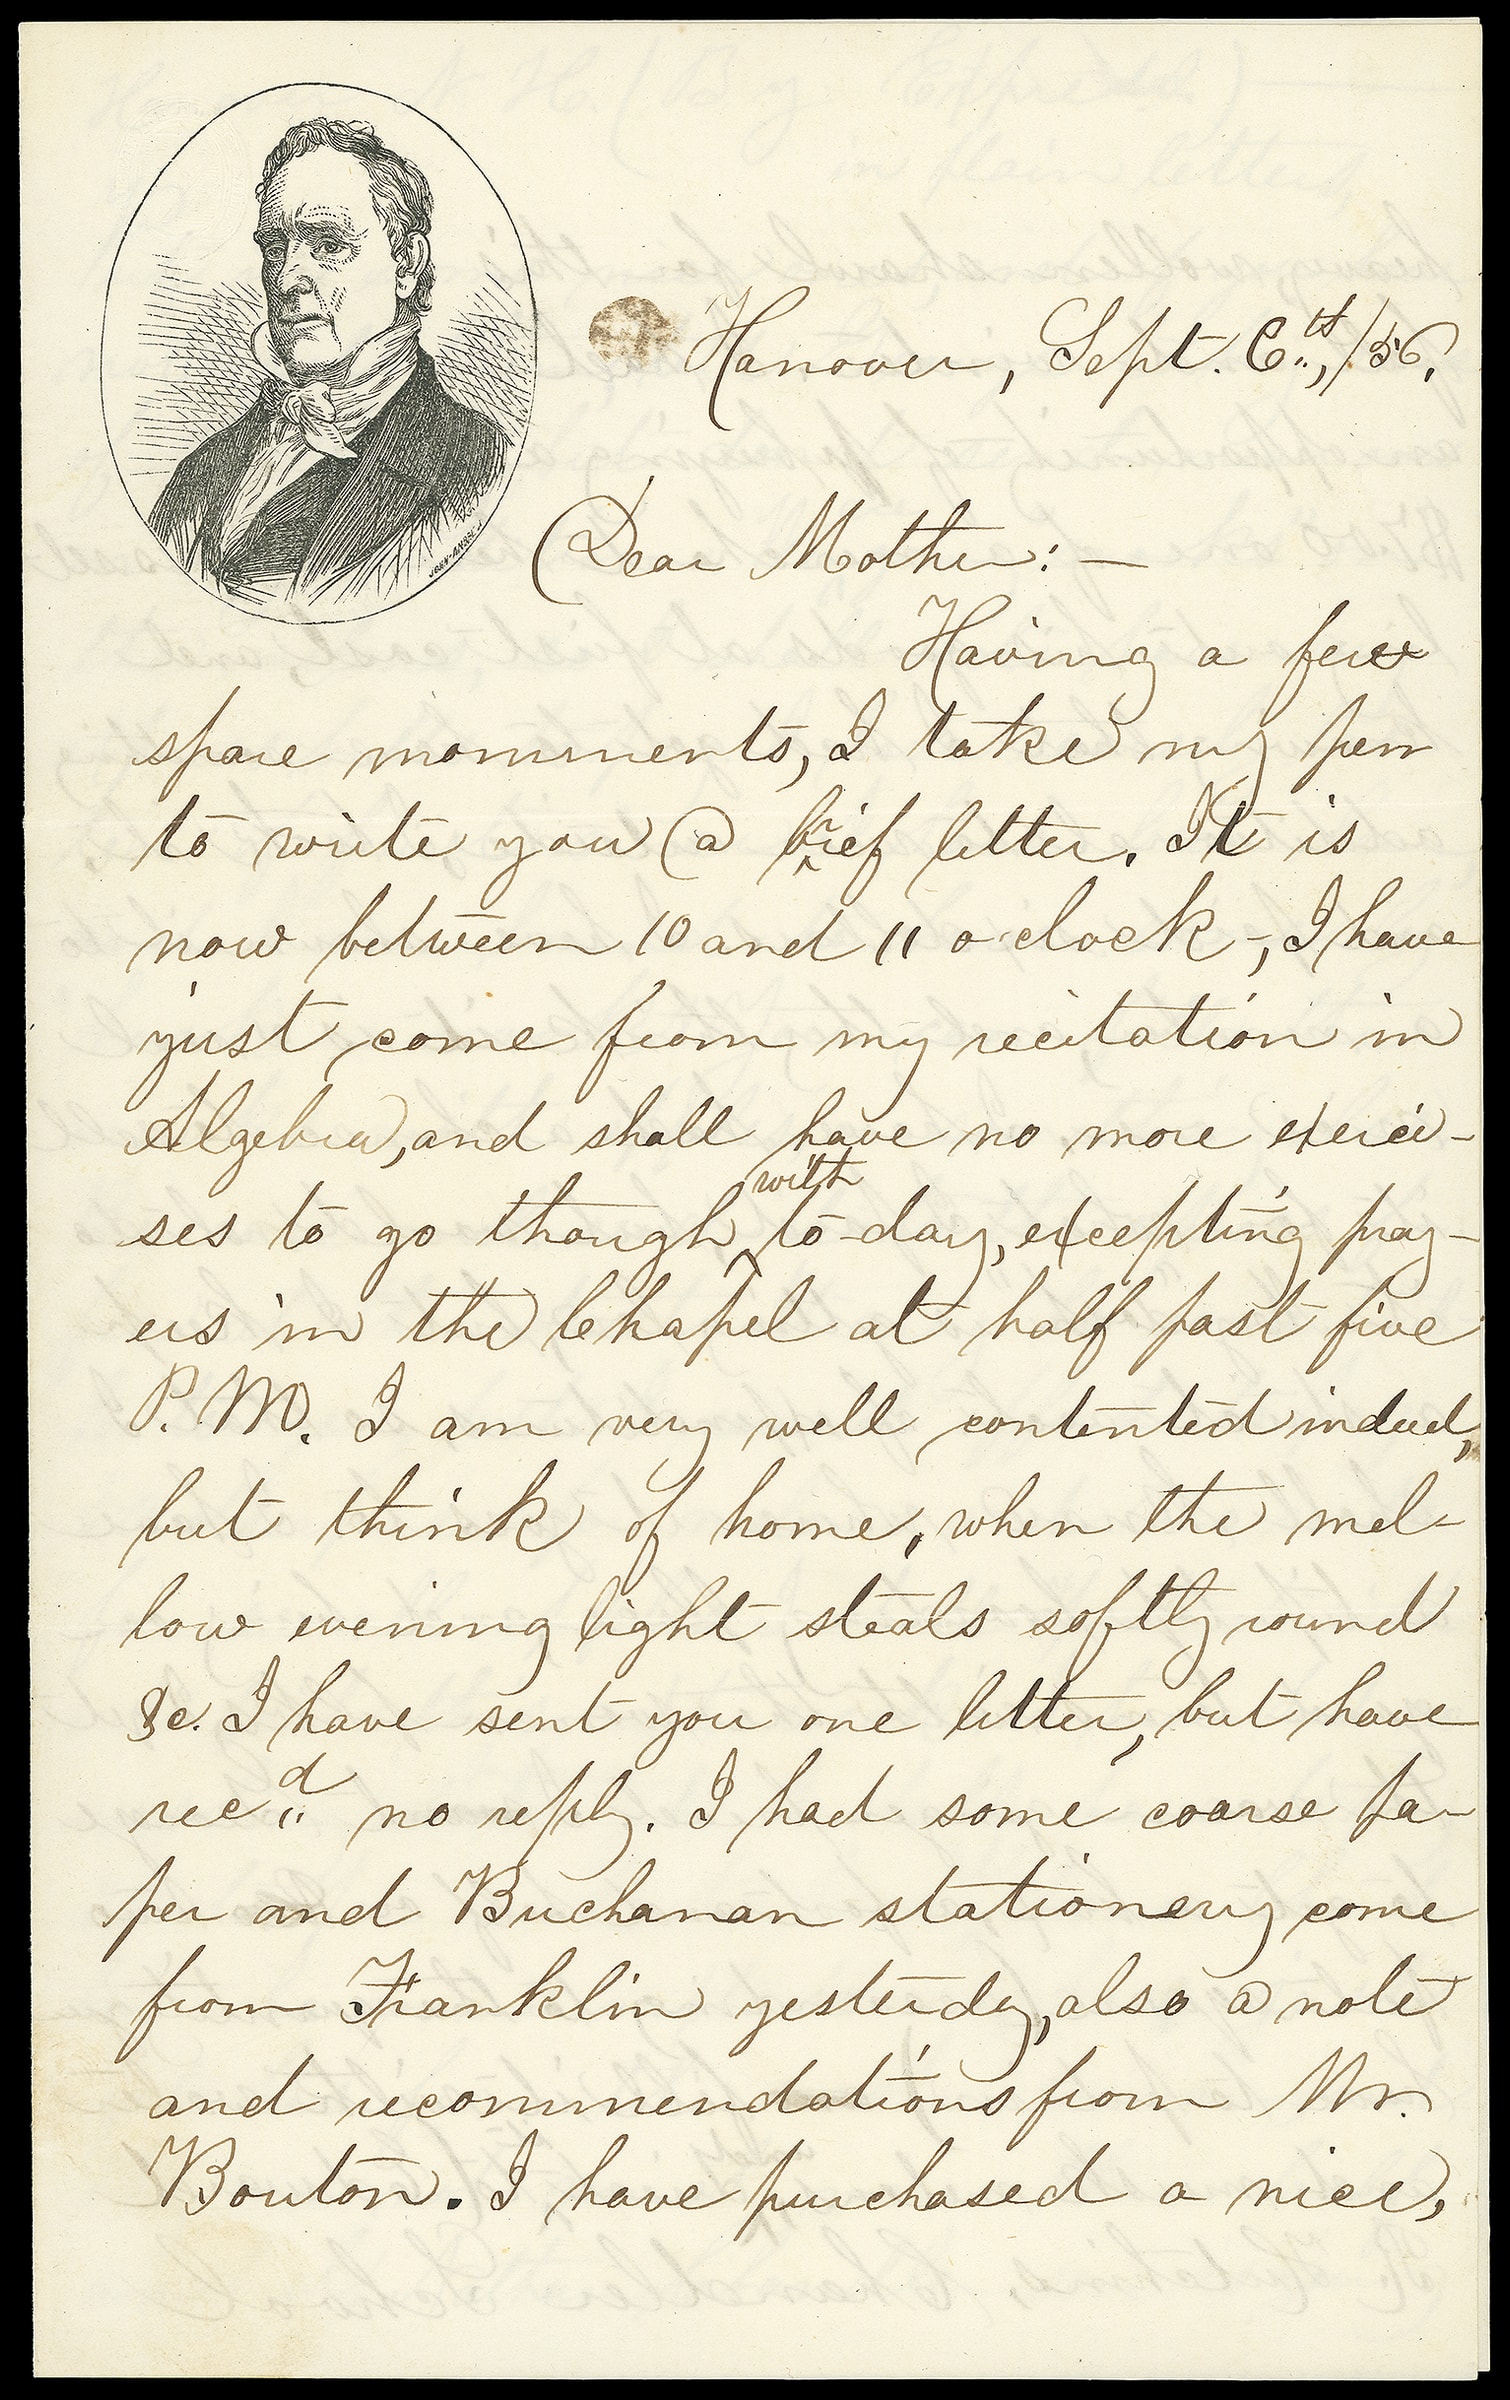 Hanover, Sept. 6th, /56.
Dear Mother: —
Having a few
spare momments, I take my pen
to write you a brief letter. It is
now between 10 and 11 o'clock -, I have
just come from my recitation in
Algebra, and shall have no more exerci-
ses to go though with to-day, excepting pray-
ers in the Chapel at half past five
P. M. I am very well contented indeed,
but think of home, when the mel-
low evening light steals softly round
&c. I have sent you one letter, but have
recd no reply. I had some coarse pa-
per and Buchanan stationery come
from Franklin yesterday, also a note
and recommendations from Mr.
Bouton. I have purchased a nice,